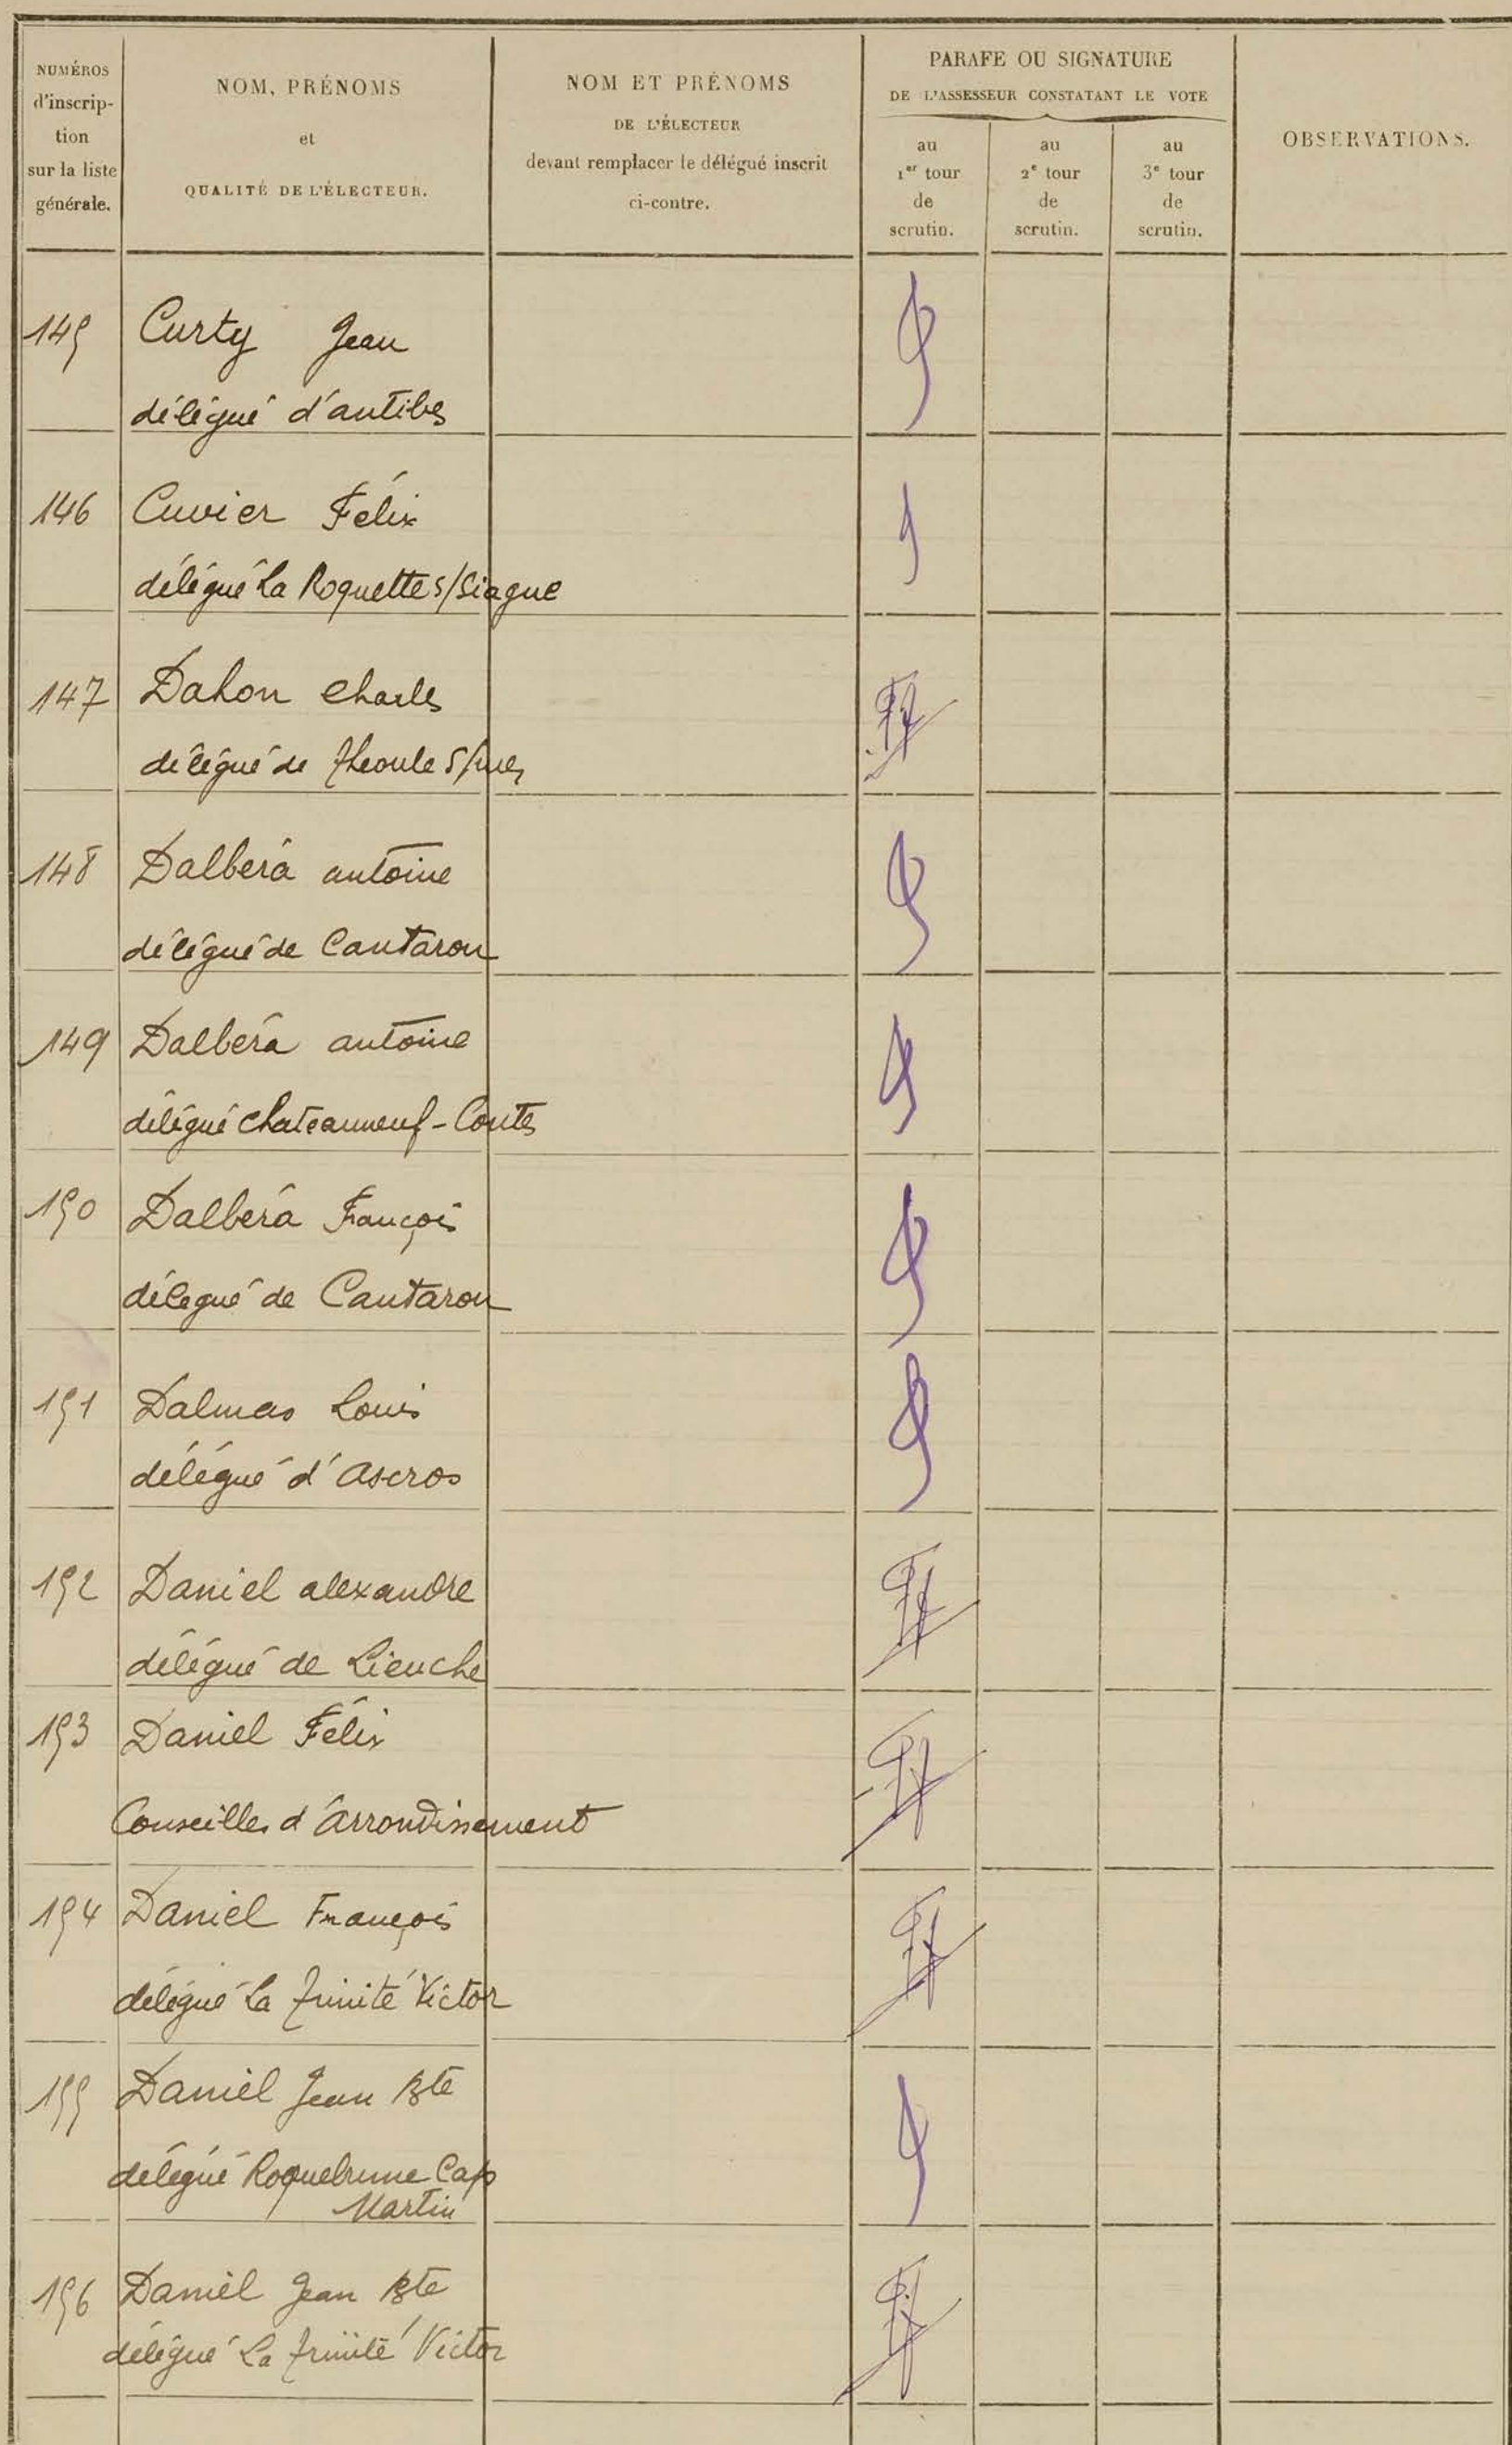 NUMÉROS
d'inscrip-
tion
sur la liste
générale.
NOM, PRÉNOMS
et
QUALITÉ DE L'ÉLECTEUR.
NOM ET PRÉNOMS
DE L'ÉLECTEUR
devant remplacer le délégué inscrit
ci-contre.
PARAFE OU SIGNATURE
DE L'ASSESSEUR CONSTATANT LE VOTE
au
1er tour
de
scrutin.
au
2e tour
de
scrutin.
au
3e tour
de
scrutin.
OBSERVATIONS.
145 Curty Jean
délégué d'antibes
146 Cuvier Félix
délégué La Roquette s/Siagne
147 Dahon Charles
délégué de Théoule s/mer
148 Dalbéra antoine
délégué de Cantaron
149 Dalbéra antoine
délégué Chateauneuf-Contes
150 Dalbéra François
délégué de Cantaron
151 Dalmas Louis
délégué d'Ascros
152 Daniel alexandre
délégué de Lieuche
153 Daniel Félix
Conseiller d'Arrondissement
154 Daniel François
délégué La Trinité Victor
155 Daniel Jean Bte
délégué Roquebrune Cap
Martin
156 Daniel Jean Bte
délégué La Trinité Victor